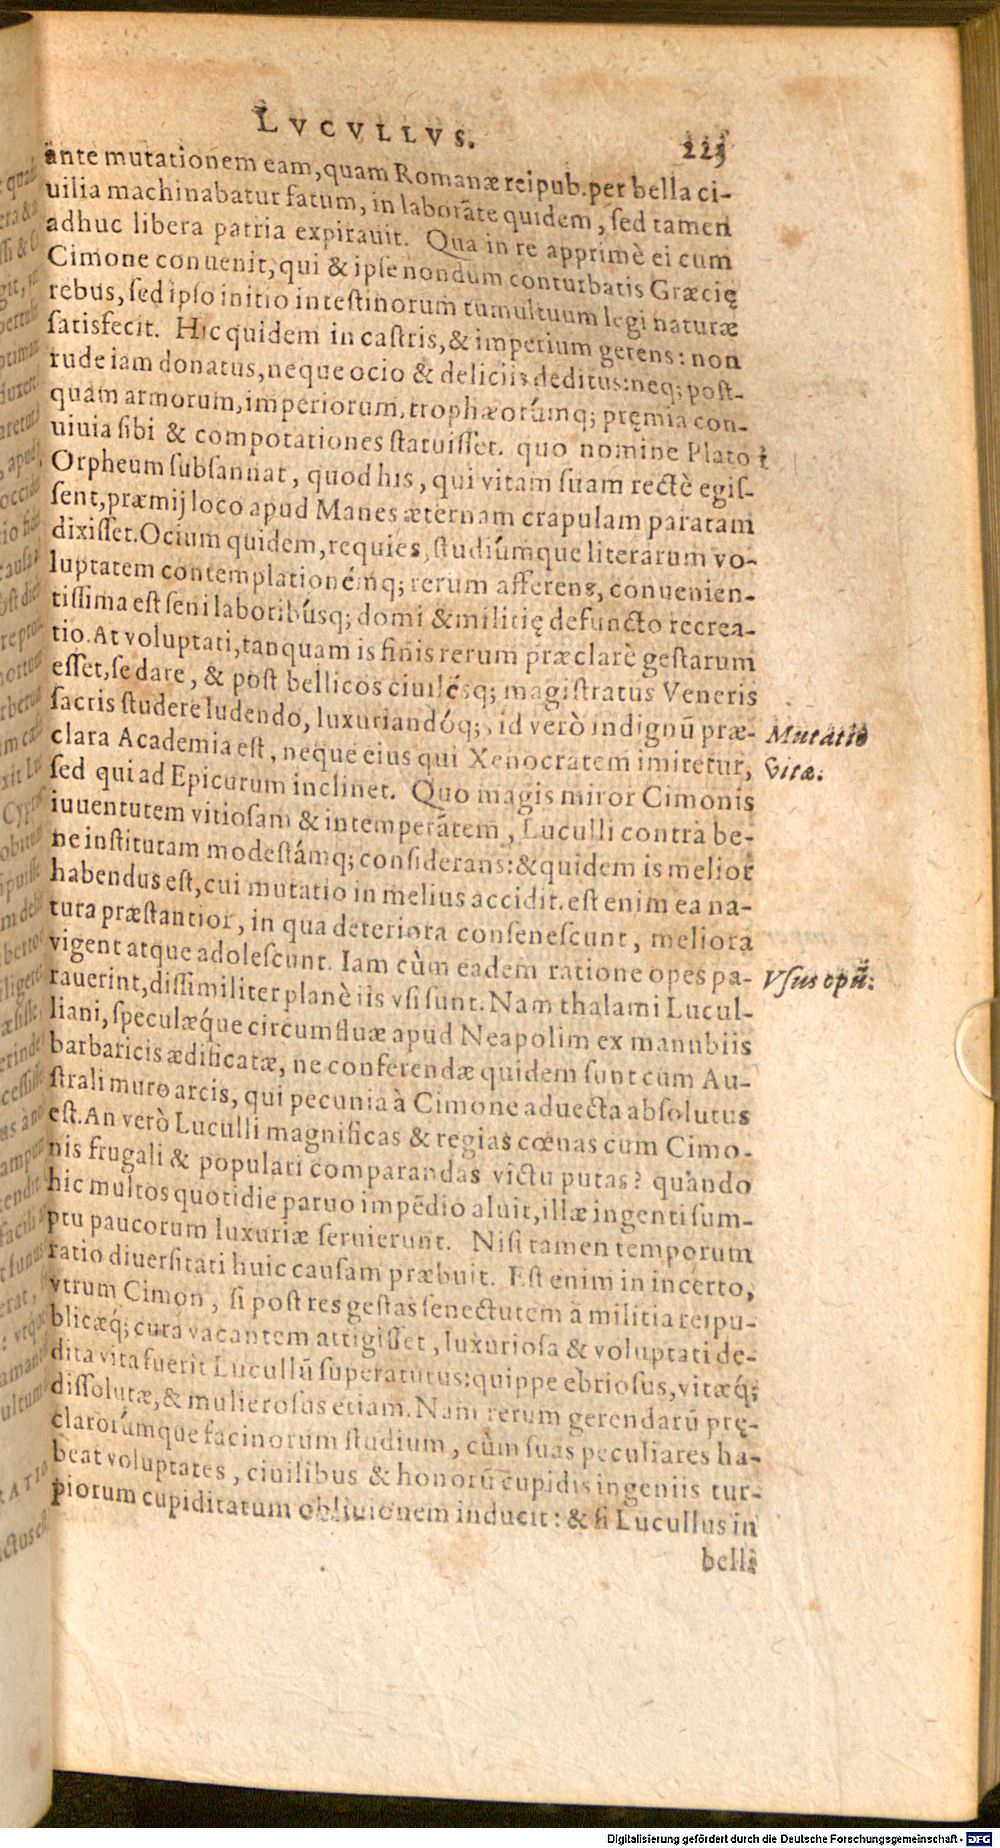 LVCVLLVS. 223
ante mutationem eam, quam Romanæ reipub. per bella ci-
uilia machinabatur fatum, in laborãte quidem, sed tamen
adhuc libera patria expirauit. Qua in re apprimè ei cum
Cimone conuenit, qui & ipse nondum conturbatis Græcię
rebus, sed ipso initio intestinorum tumultuum legi naturæ
satisfecit. Hic quidem in castris, & imperium gerens: non
rude iam donatus, neque ocio & deliciis deditus: neq; post-
quam armorum, imperiorum, trophæorúmq; pręmia con-
uiuia sibi & compotationes statuisset. quo nomine Plato
Orpheum subsannat, quod his, qui vitam suam rectè egis-
sent, præmij loco apud Manes æternam crapulam paratam
dixisset. Ocium quidem, requies, studiúmque literarum vo-
luptatem contemplationémq; rerum afferens, conuenien-
tissima est seni laboribúsq; domi & militię defuncto recrea-
tio. At voluptati, tanquam is finis rerum præclarè gestarum
esset, se dare, & post bellicos ciuilésq; magistratus Veneris
sacris studere ludendo, luxuriandóq;, id verò indignũ præ-
clara Academia est, neque eius qui Xenocratem imitetur,
Mutatio
vitæ.
sed qui ad Epicurum inclinet. Quo magis miror Cimonis
iuuentutem vitiosam & intemperãtem, Luculli contrà be-
ne institutam modestámq; considerans: & quidem is melior
habendus est, cui mutatio in melius accidit. est enim ea na-
tura præstantior, in qua deteriora consenescunt, meliora
vigent atque adolescunt. Iam cùm eadem ratione opes pa-
Vsus opũ.
rauerint, dissimiliter planè iis vsi sunt. Nam thalami Lucul-
liani, speculæque circumfluæ apud Neapolim ex manubiis
barbaricis ædificatæ, ne conferendæ quidem sunt cum Au-
strali muro arcis, qui pecunia à Cimone aduecta absolutus
est. An verò Luculli magnificas & regias cœnas cum Cimo-
nis frugali & populari comparandas victu putas? quando
hic multos quotidie paruo impẽdio aluit, illæ ingenti sum-
ptu paucorum luxuriæ seruierunt. Nisi tamen temporum
ratio diuersitati huic causam præbuit. Est enim in incerto,
vtrum Cimon, si post res gestas senectutem à militia reipu-
blicæq́; cura vacantem attigisset, luxuriosa & voluptati de-
dita vita fuerit Lucullũ superaturus: quippe ebriosus, vitæq́;
dissolutæ, & mulierosus etiam. Nam rerum gerendarũ prę-
clarorúmque facinorum studium, cùm suas peculiares ha-
beat voluptates, ciuilibus & honorũ cupidis ingeniis tur-
piorum cupiditatum obliuionem inducit: & si Lucullus in
belli
Digitalisierung gefördert durch die Deutsche Forschungsgemeinschaft - DFG